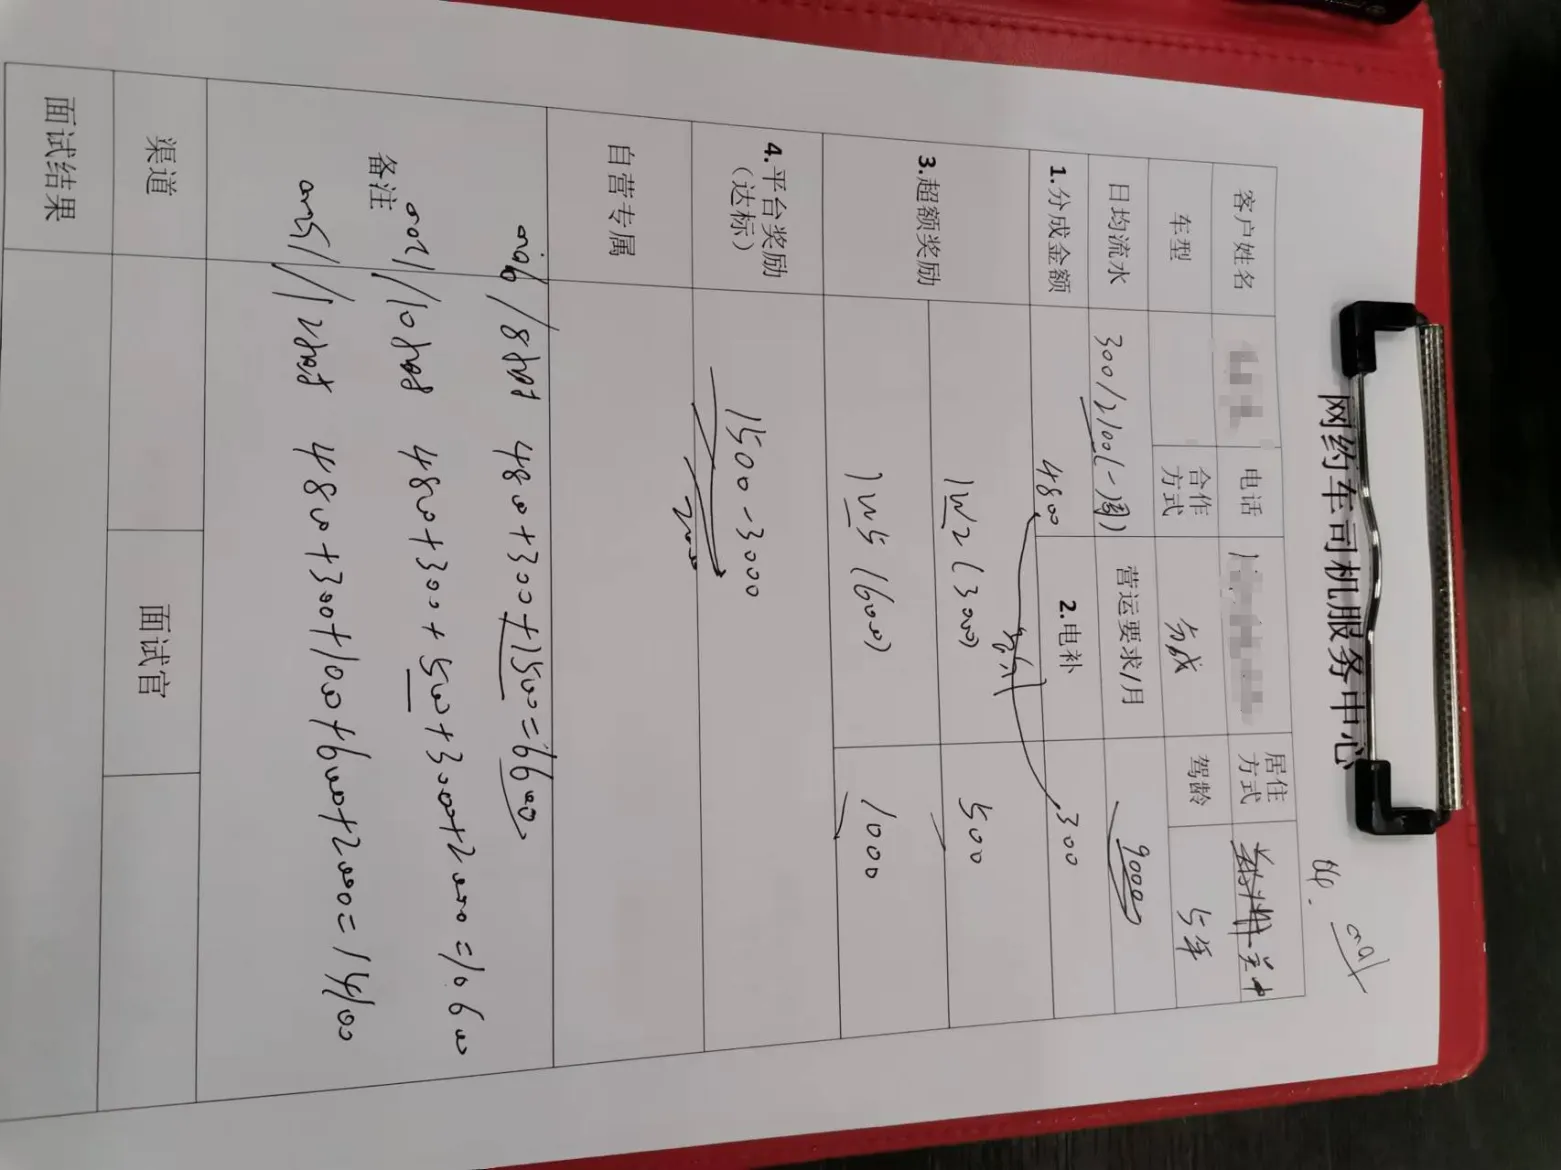 网约车司机服务中心
客户姓名 电话 居住方式
车型 合作方式 分成 驾龄 5年
日均流水 300/2100(一周) 营运要求/月 9000
1.分成金额 4800 2.电补 300
3.超额奖励 1W2 (3000) 500
1W5 (6000) 1000
4.平台奖励(达标) 1500-3000
2000
自营专属
备注
9000/8小时 4800+300+1500=6600
12000/10小时 4800+300+500+3000+2000=10600
15000/12小时 4800+300+1000+6000+2000=14100
渠道 面试官
面试结果